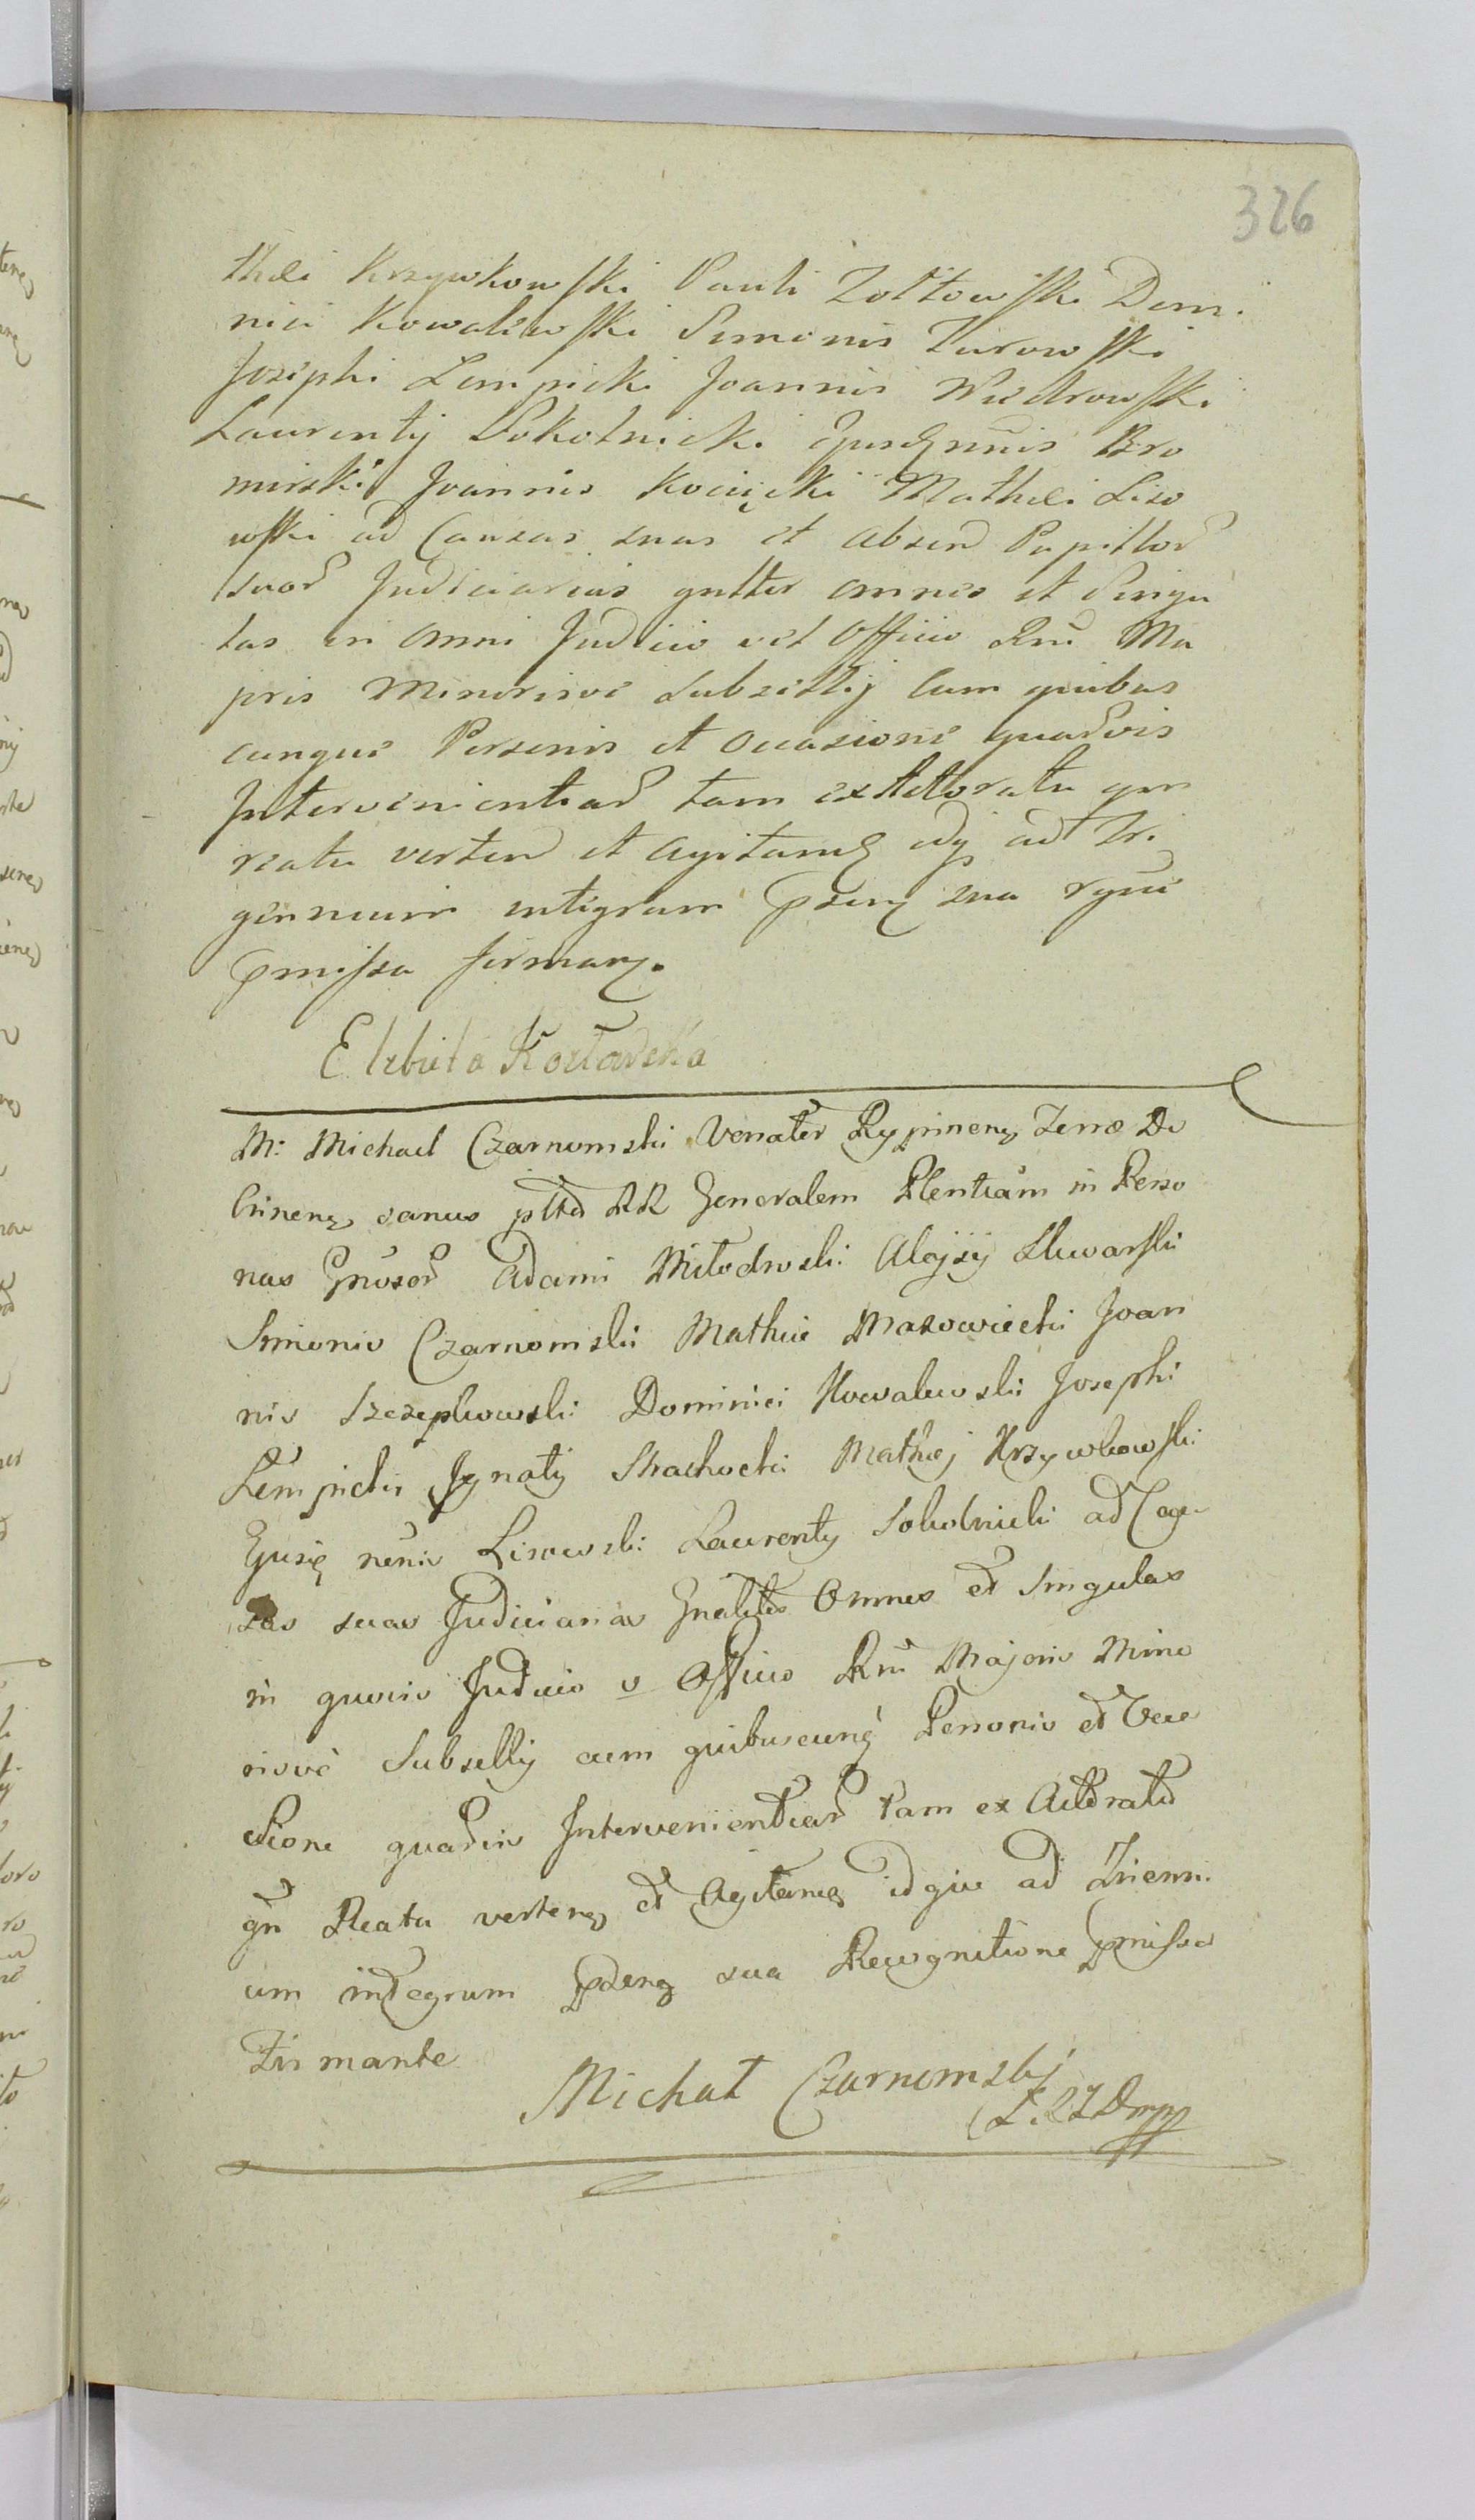 326
thei Krzywkowski Pauli Żołtowski Domi
nici Kowalewski Simonis Żurowski
Josephi Lempicki Joannis Wiedrowski
Laurentij Sokolnicki Ejusdnnis Bro
mirski Joannis Kociięcki Mathei Liso
wski ad Causas suas et absen Pupillor
suor Judiciarias gnlter omnes et Singu
las in omni Judicio vel Officio Rni Ma
joris Minorisve Subsellij cum quibus
cunque Personis et occasione quarvis
Intervenientiar tam ex Actoratu qm
reatu verten et agitan idq ad Tri
ennium integrum psenq sua rgnne
pmissa firman.
Elzbieta Kozłowska
M: Michael Czarnomski Venator Rypinen Terræ Do
brinen sanus pttd RR Generalem Plentiam in Perso
nas Gnosor Adami Miłodroski Aloysij Sluwarski
Simonis Czarnomski Mathiæ Mazowiecki Joan
nis Szczepkowski Dominici Kowalewski Josephi
Lempicki Ignatij Strachocki Mathej Krzywkowski
Ejusd nenis Lisowski Laurentij Sokolnicki ad Cau
sas suas Judiciarias Gnaliter Omnes et Singulas
in quovis Judicio v Officio Rni Majoris Mino
risve Subsellij cum quibuscunq Personis et Occa
sione quarvis Intervenientiar tam ex Actoratu
qm Reatu verten et Agitan idque ad Trienni
um integrum psenq sua Recognitione pmissa
Firmante
Michał Czarnomski
Ł. R Z D mpp